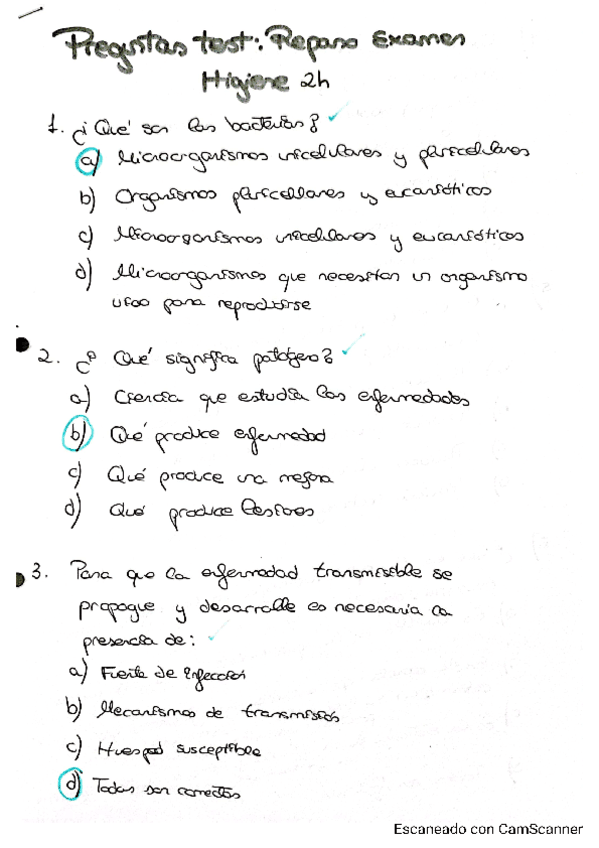 Preguntas test: Repaso Examen
Higiene 2h
1. ¿Qué son las bacterias?
a) Microorganismos unicelulares y pluricelulares
b) Organismos pluricelulares y eucarióticos
c) Microorganismos unicelulares y eucarióticos
d) Microorganismos que necesitan un organismo
vivo para reproducirse
2. ¿Qué significa patógeno?
a) Ciencia que estudia las enfermedades
b) Qué produce enfermedad
c) Qué produce una mejora
d) Qué produce lesiones
3. Para que la enfermedad transmisible se
propague y desarrolle es necesaria la
presencia de:
a) Fuente de infección
b) Mecanismos de transmisión
c) Huesped susceptible
d) Todas son correctas
Escaneado con CamScanner